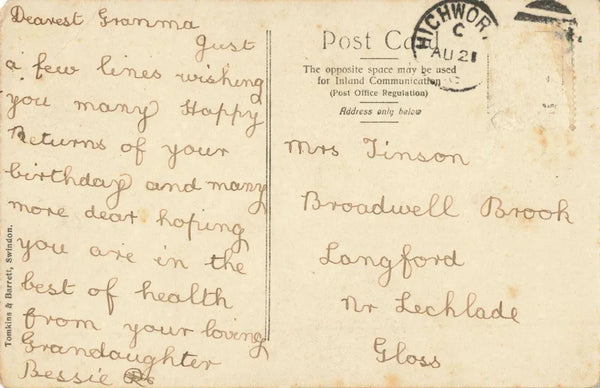 Dearest Granma
Just
a few lines wishing
you many Happy
Returns of your
birthday and many
more dear hoping
you are in the
best of health
from your loving
Grandaughter
Bessie
Tomkins & Barrett, Swindon.
Post Card
The opposite space may be used
for Inland Communication
(Post Office Regulation)
Address only below
HIGHWOR
C
AU 21
Mrs Tinson
Broadwell Brook
Langford
Nr Lechlade
Gloss